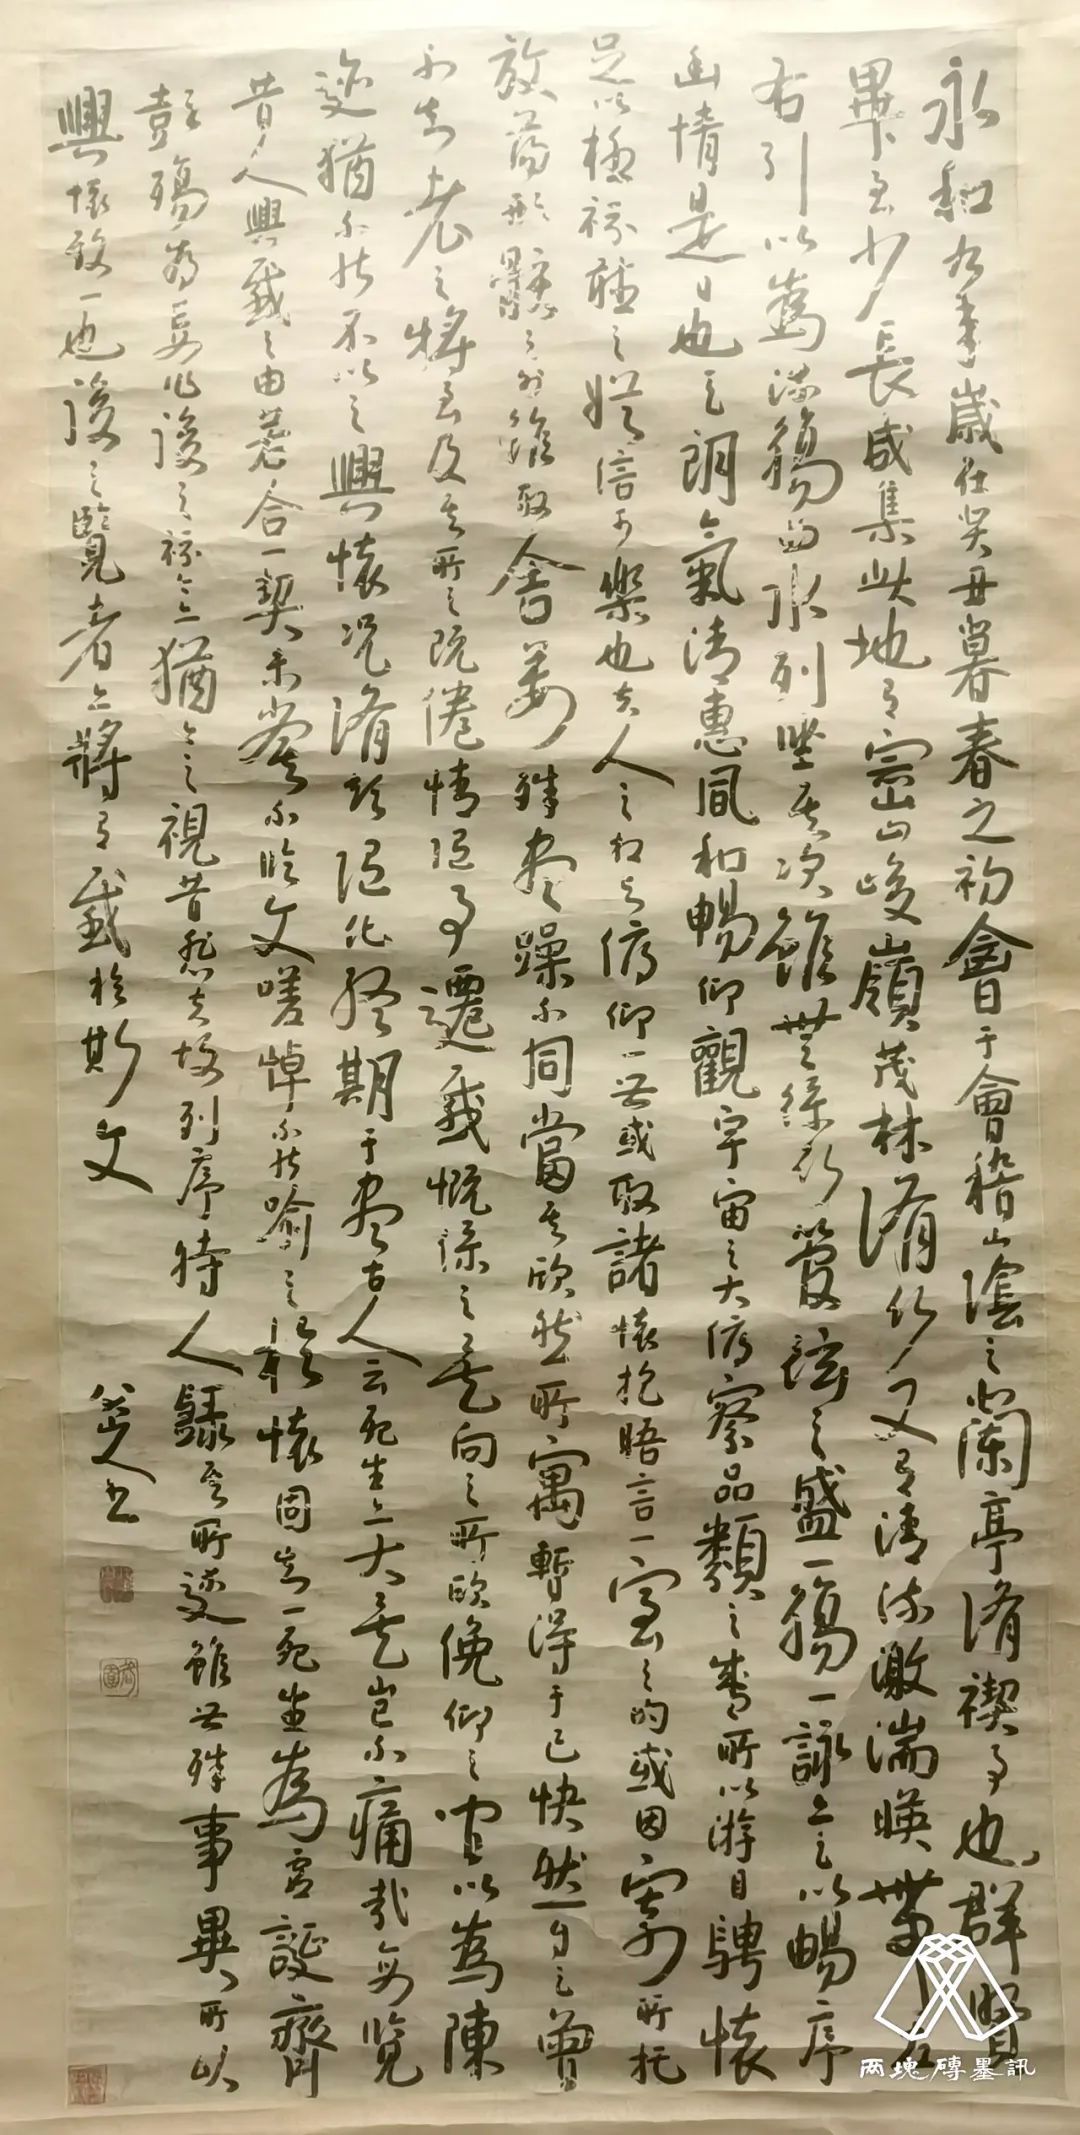 永和九年歲在癸丑暮春之初會于會稽山陰之蘭亭脩禊事也群賢
畢至少長咸集此地有崇山峻嶺茂林脩竹又有清流激湍暎帶左
右引以為流觴曲水列坐其次雖無絲竹管弦之盛一觴一詠亦足以暢序
幽情是日也天朗氣清惠風和暢仰觀宇宙之大俯察品類之盛所以游目騁懷
足以極視聽之娛信可樂也夫人之相與俯仰一世或取諸懷抱晤言一室之內或因寄所托
放蕩形骸之外雖取舍萬殊靜躁不同當其欣然所寓暫得于己快然自足曾
不知老之將至及其所之既倦情隨事遷感慨係之矣向之所欣俛仰之間以為陳
迹猶不能不以之興懷況脩短隨化終期于盡古人云死生亦大矣豈不痛哉每覽
昔人興感之由若合一契未嘗不臨文嗟悼不能喻之於懷固知一死生為虛誕齊
彭殤為妄作後之視今亦猶今之視昔悲夫故列序時人錄其所述雖世殊事異所以
興懷致一也後之覽者亦將有感於斯文
八大山人書
两塊磚墨訊